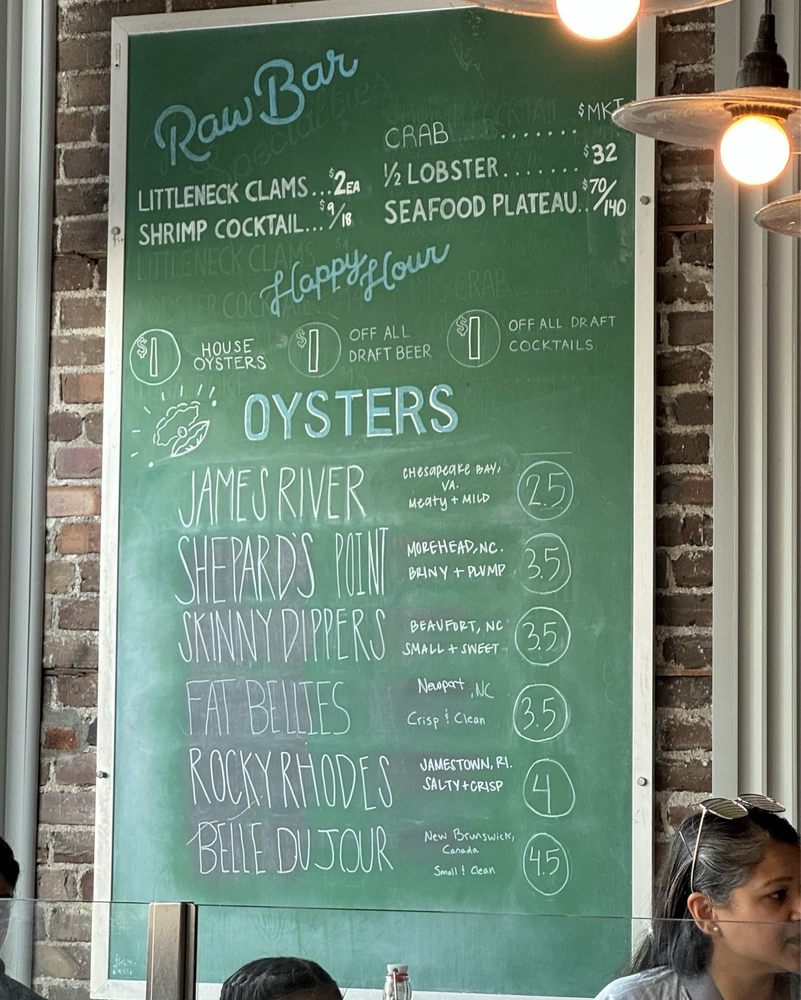 Raw Bar
LITTLENECK CLAMS...$2EA
SHRIMP COCKTAIL...$9/18
CRAB ....... $MKT
1/2 LOBSTER....... $32
SEAFOOD PLATEAU..$70/140
Happy Hour
$1 HOUSE
OYSTERS
$1 OFF ALL
DRAFT BEER
$1 OFF ALL DRAFT
COCKTAILS
OYSTERS
JAMES RIVER
CHESAPEAKE BAY,
VA.
MEATY + MILD
2.5
SHEPARD'S POINT
MOREHEAD, NC.
BRINY + PLUMP
3.5
SKINNY DIPPERS
BEAUFORT, NC
SMALL + SWEET
3.5
FAT BELLIES
Newport, NC
Crisp & Clean
3.5
ROCKY RHODES
JAMESTOWN, RI.
SALTY + CRISP
4
BELLE DU JOUR
New Brunswick,
Canada
Small & Clean
4.5